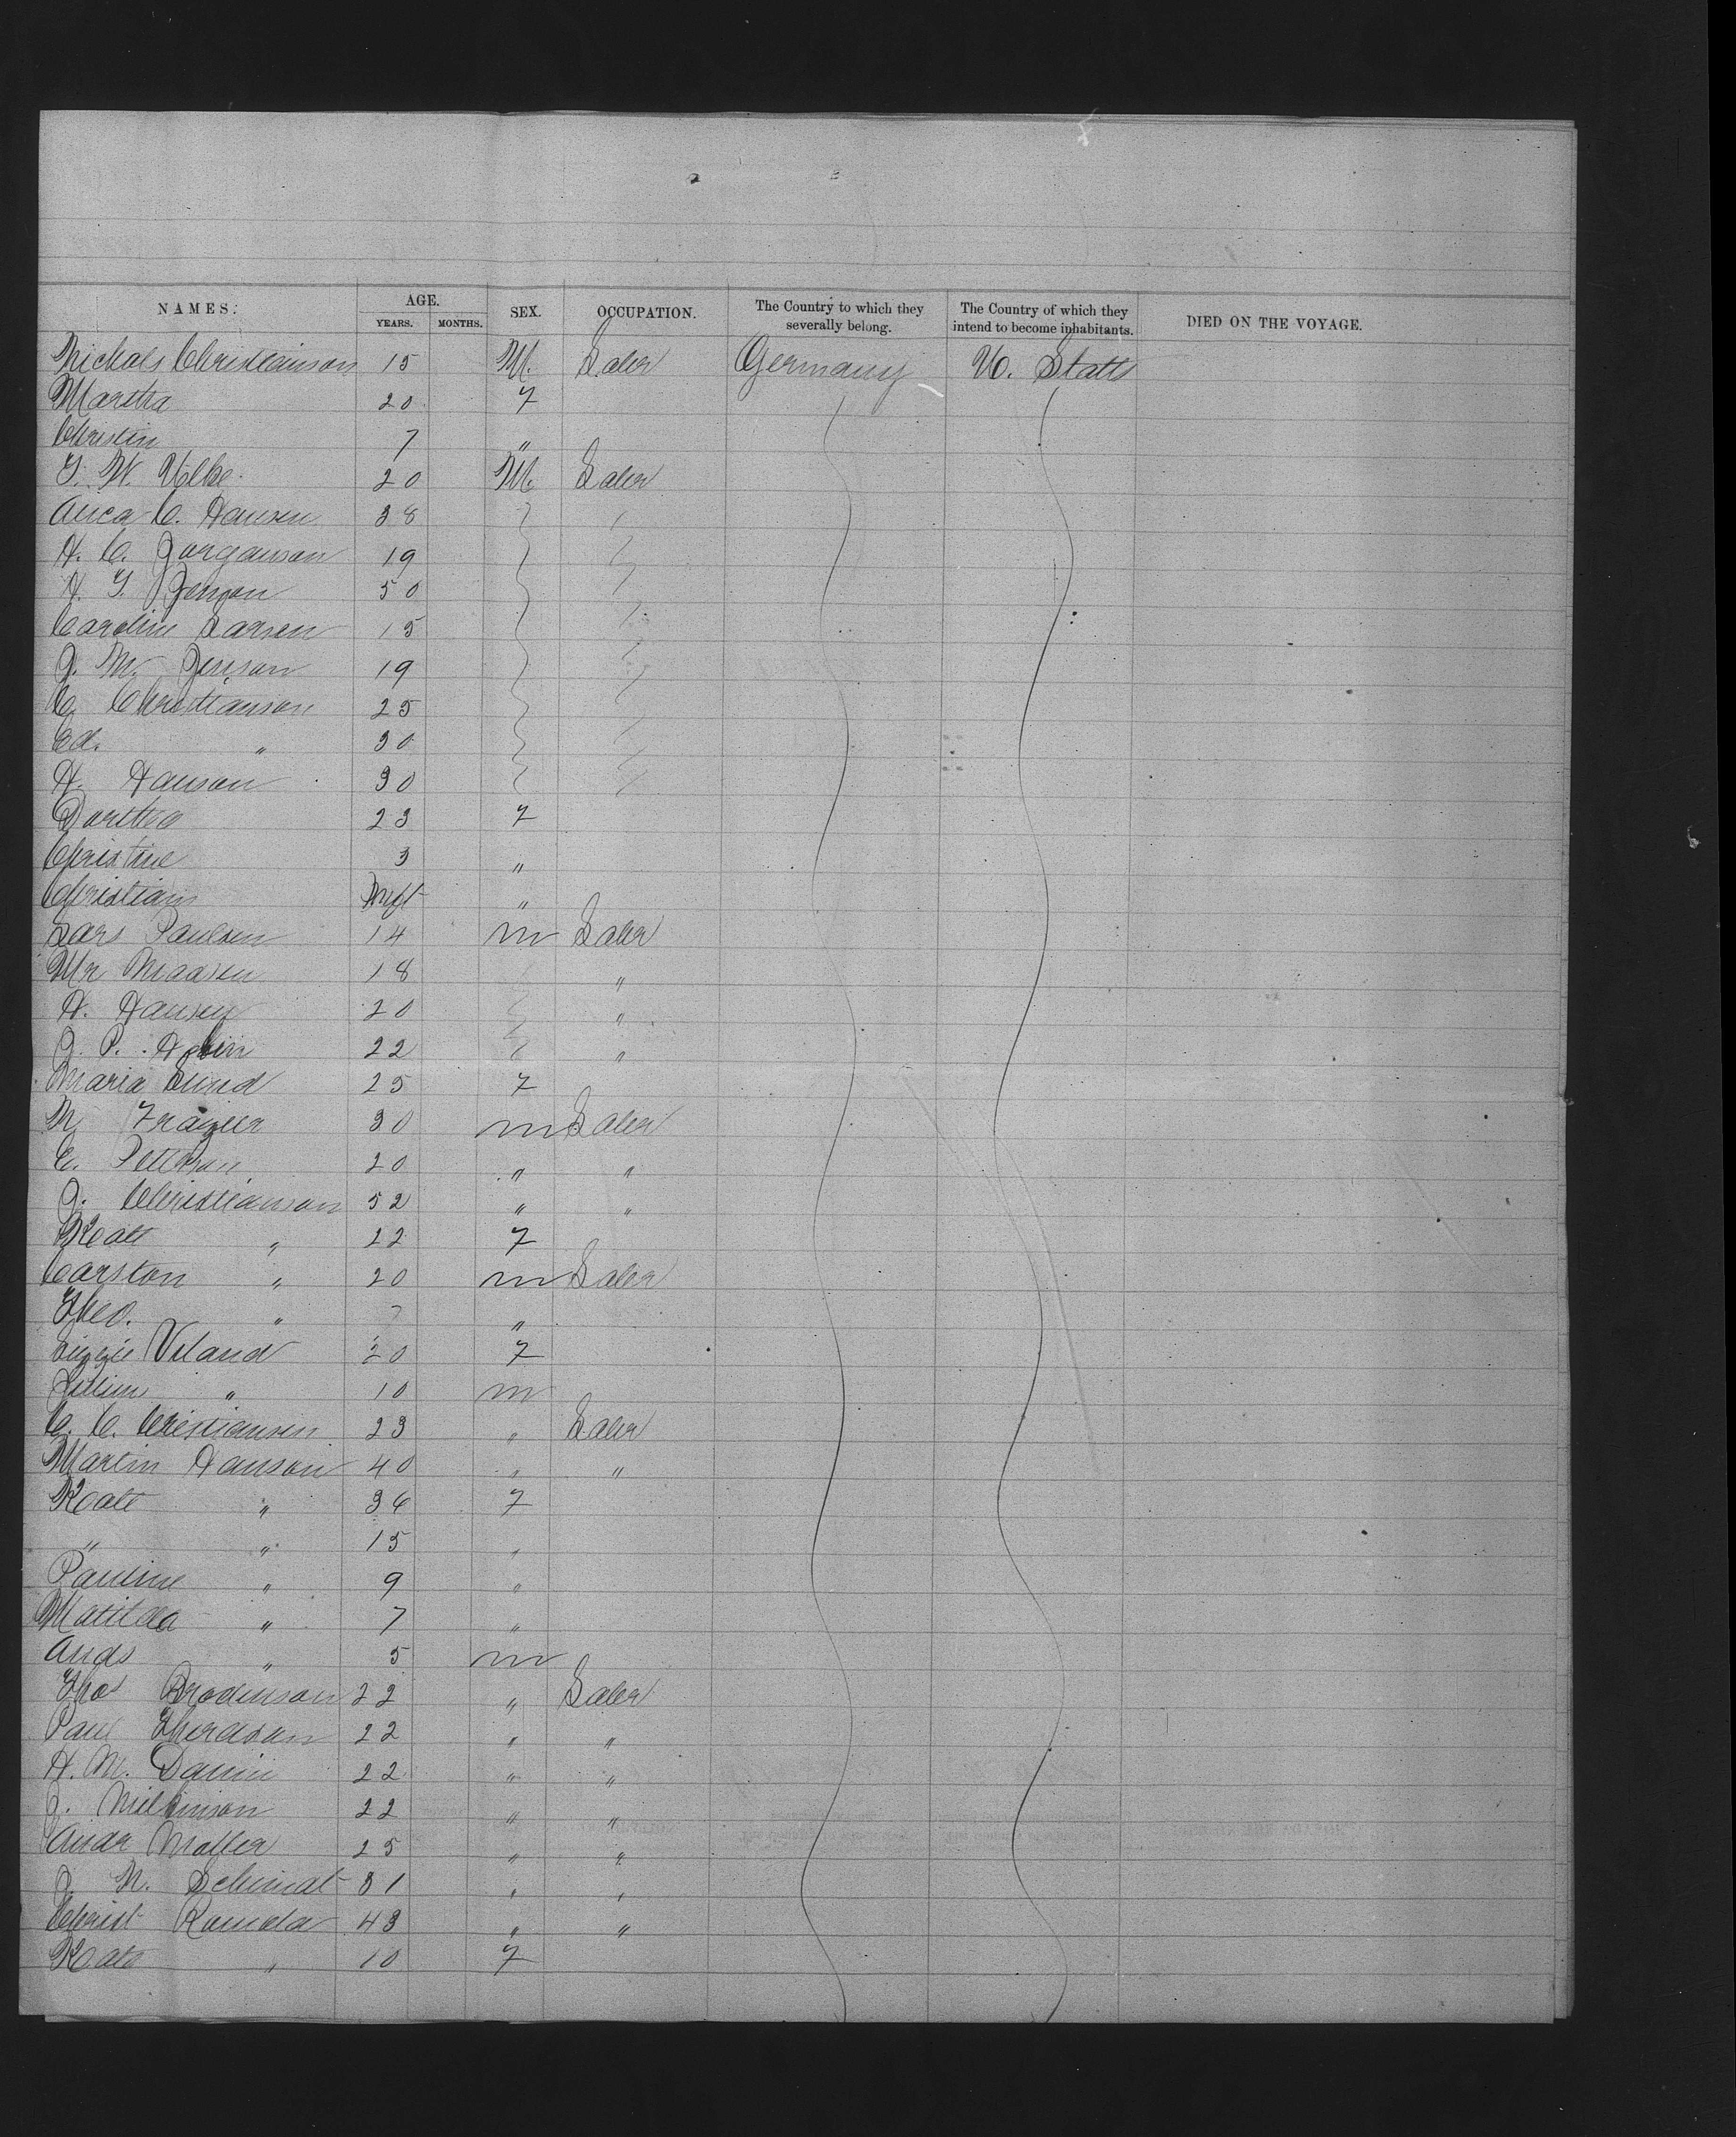 NAMES. AGE. YEARS. MONTHS. SEX. OCCUPATION. The Country to which they severally belong. The Country of which they intend to become inhabitants. DIED ON THE VOYAGE.
Nickols Christianson 15 M. Labr Germany U. Statts
Martha 20 F
Christin 7 "
T. W. 20 M. Labr
C. Hansen 38
H. C. Jorganson 19
H. T. Jenson 50
Caroline Larsen 15
J. M. Jenson 19
C. Christianson 25
Ed. " 30
H. Hanson 30
Dorthea 23 F
Christine 3 "
Christian Inft "
Lars Paulsen 14 m Labr
Mr Madsen 18 "
H. Hansen 20 "
J. P. 22 "
Maria Lund 25 F
N Frazier 30 m Labr
E. Petterson 20 " "
J. Christianson 52 " "
Kate " 22 F
Carston " 20 m Labr
Theo. " "
Lizzie Viland 20 F
" 10 m
C. C. Christiansen 23 " Labr
Martin Hanson 40 " "
Kate " 36 F
" " 15 "
Pauline " 9 "
Matilda " 7 "
Ands " 5 m
Thos Brodinson 22 " Labr
Paul 22 " "
H. M. 22 " "
J. 22 " "
Andr Moller 25 " "
J. N. Schmidt 31 " "
Christ Ramda 43 " "
Kate " 10 F